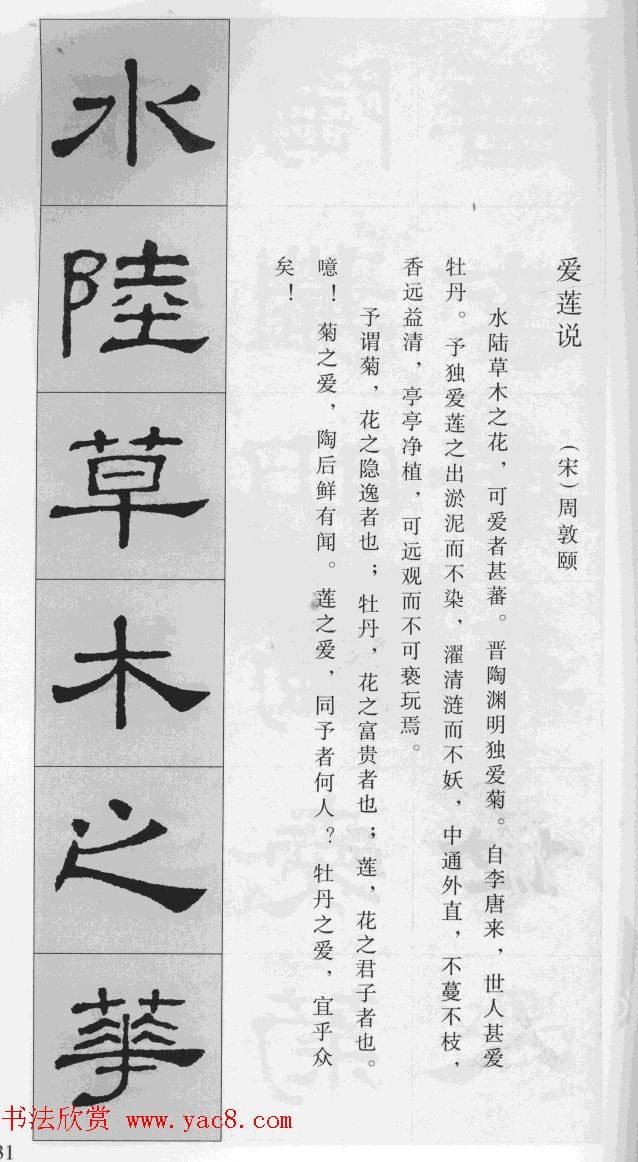 爱莲说
（宋）周敦颐
水陆草木之花，可爱者甚蕃。晋陶渊明独爱菊。自李唐来，世人甚爱
牡丹。予独爱莲之出淤泥而不染，濯清涟而不妖，中通外直，不蔓不枝，
香远益清，亭亭净植，可远观而不可亵玩焉。
予谓菊，花之隐逸者也；牡丹，花之富贵者也；莲，花之君子者也。
噫！菊之爱，陶后鲜有闻。莲之爱，同予者何人？牡丹之爱，宜乎众
矣！
水陸草木之華
书法欣赏 www.yac8.com
31